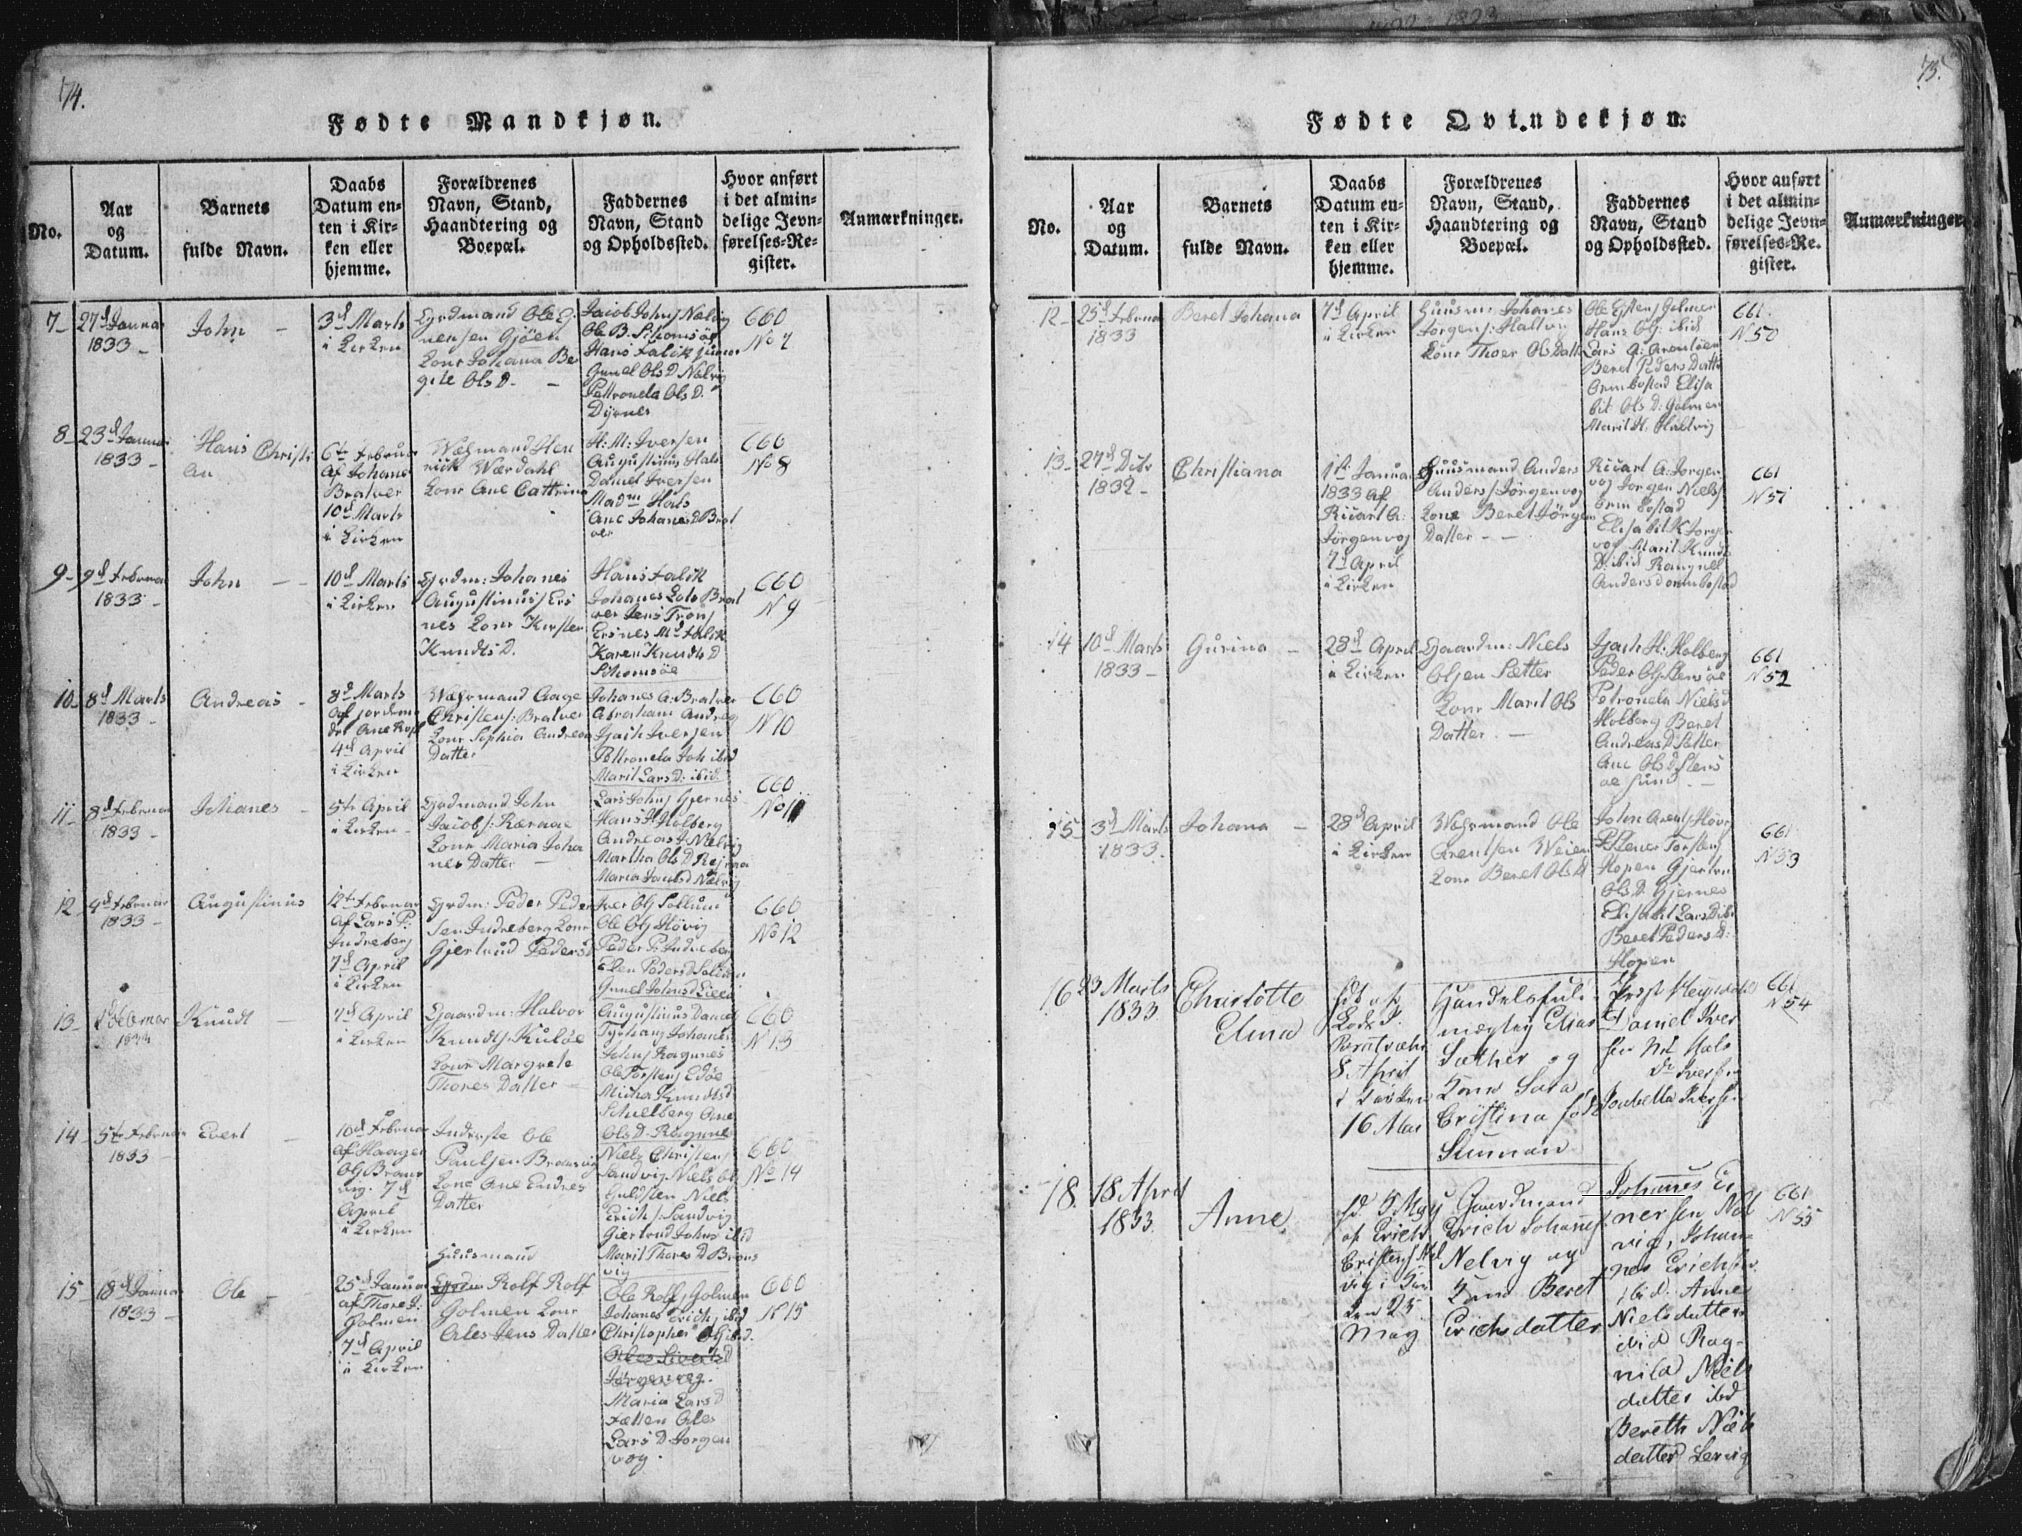 74.
Fødte Mandkjøn.
No.
Aar
og
Datum.
Barnets
fulde Navn.
Daabs
Datum en-
ten i Kir-
ken eller
hjemme.
Forældrenes
Navn, Stand,
Haandtering og
Boepæl.
Faddernes
Navn, Stand
og Opholdssted.
Hvor anført
i det almin-
delige Jevn-
førelses-Re-
gister.
Anmærkninger.
7 -
27d Januar
1833 -
John -
3d Marts
i Kirken
Gjrdmand Ole G
nensen Gjøen
Kone Johana Be
gite Ols D. -
Jacob Johns Nelvig
Ole B. Schomsøe
Hans Falik junior
Gunel Ols D Nelvig
Pettronela Ols D.
Dyrnes
660
No 7
8 -
23d Januar
1833 -
Hans Christi
an
6te Februar
af Johanes
Bratver
10d Marts
i Kirken
Væhrmand Hen
rick Værdahl
Kone Ane Cattrina
H: M: Iversen
Augustinus Hals
Daniel Iversen
Madm Hals
Ane Johanes D Brat
ver
660
No 8
9 -
9d Februar
1833 -
John - -
10d Marts
i Kirken
Gjrdm: Johanes
Augustinuss Ers
nes Kone Kirsten
Knudts D.
Hans Falik
Johanes Lots Brat
ver Jens Trons
Ersnes Md Falik
Karen Knudts D
Schomsøe
660
N 9
10 -
8d Marts
1833 -
Andreas -
8d Marts
af jordemo
dr Ane Rolf
4d April
i Kirken
Væhrmand Aage
Christens: Bratver
Kone Sophia Andrea
Datter
Johanes A: Bratver
Abraham Andreas
Isach Iversen
Pettronela Joh ibid
Marit Lars D: ibid
660
N 10
11 -
8d Februar
1833 -
Johanes -
5te April
i Kirken -
Gjrdmand John
Jacobs: Rærnae
Kone Maria Joha
nes Datter -
Lars Johns Gjernes
Hans H Holberg
Andreas J Nelvig
Martha Ols D Rejrnaa
Maria Jacobs D Nelvig
660
No 11
12 -
4d Februar
1833 -
Augustinus
12te Februar
af Lars P:
Indreberg
7d April
i Kirken
Gjrdm: Peder Peder
sen Indreberg Kone
Gjertrud Peders D
Iver Ols Sollum
Ole Ols Høvig
Peder P: Indreberg
Elen Peders D Sollum
Gunel Johns D Lien
660
No 12
13 -
Februar
1833
Knudt -
7d April
i Kirken
Gaardm: Halvor
Knudts Kuløe
Kone Margrete
Thores Datter -
Augustinus Daniels
Tyrhaug Johanes
Johns Ragnnes
Ole Torstens Edøe
Micha Knudts D
Schielberg Ane
Ols D. Ragnnes
660
N 13
14 -
5te Februar
1833 -
Evert -
10d Februar
af Haagen
Ols Brans
vig. 7d
April
i Kirken
Inderste Ole
Paulsen Bransvig
Kone Ane Endres
Datter
Niels Christens
Sandvig Niels Ols
Guldsten Niels
Erich s: Sandvig
Giertrud Johns ibid
Marit Thores D Brons
vig
660
No 14
15 -
18d Januar
1833 -
Ole - -
25d Januar
af Thore J.
Golmen
7d April
i Kirken
Huusmand
Gjrdm Rolf Rolf
Golmen Kone
Ales Jens Datter
Ole Rolfs Golmen
Johanes Erichs ibid
Christopher Ols ibid.
Ales Sivert D
Jørgenvog.
Maria Lars D
Fætten Ales
Lars D Jorgen
vog.
660
N 15
75.
Fødte Qvindekjøn.
No.
Aar
og
Datum.
Barnets
fulde Navn.
Daabs
Datum en-
ten i Kir-
ken eller
hjemme.
Forældrenes
Navn, Stand,
Haandtering og
Boepæl.
Faddernes
Navn, Stand
og Opholdssted.
Hvor anført
i det almin-
delige Jevn-
førelses-Re-
gister.
Anmærkninger.
12 -
25d Februar
1833
Beret Johana
7d April
i Kirken
Huusm: Johanes
Jørgens: Haltvig
Kone Thoer Ols Datter
Ole Estens Golmen
Hans Ols: ibid
Lars A: Arentøen
Beret Peders Datter
Ormbostad Elisa
bit Ols D: Golmen
Marit H. Haltvig
661.
N 50
13 -
27d Debr
1832 -
Christiana
1st Januar
1833 af
Ricart A:
Jørgenvog
7d April
i Kirken
Huusmand Anders
Anderss Jørgenvog
Kone Beret Jørgen
Datter - -
Ricart A: Jorgen
vog Jorgen Niels
Ormbostad
Elisabit K Jorgen
vog Marit Knudts
D: ibid Rangnel
Anders D Ormbostad
661
N 51
14
10d Marts
1833 -
Gurina -
28d April
i Kirken
Gaardm: Niels
Olsen Sætter
Kone Marit Ols
Datter. -
Isach H: Holberg
Peder Ols Stensøe
Petronela Niels D
Holberg Beret
Andreas D Sætter
Ane Ols D Stens
øe sund -
661
N 52
15 -
3d Marts
1833.
Johana -
28d April
i Kirken
Væhrmand Ole
Arentsen Veien
Kone Beret Ols D
John Arents Høvig
Elener Torstens
Hopen Gjertru
Ols D. Gjernes
Elisabit Lars D ibi
Beret Peders D:
Hopen
661
N 53
16
23 Marts
1833
Charlotte
Elina
hdt af
Lods J.
Bratvæhr
8. April
i Kirken
16 Mai
Handelsfuld
mægtig Elias
Sæther og
Kone Sara
Cristina fød
Sunnan
Daniel Iver
sen Md Hals
do Iversen
Isabella Iversen
661
N 54
18.
18 April
1833.
Anne
hd. 5 May
af Erich
Cristens Nel
vig i Kir
ken 25
May
Gaardmand
Erich Johannes.
Nelvig og
Kone Beret
Erichsdatter
Johannes Ei
nersen Nel
vig, Johan-
nes Erichsen
ibid. Anne
Nielsdatter
ibid Rag-
nild Niels
datter ibd
Bereth Niels
datter Lervig
661
N 55